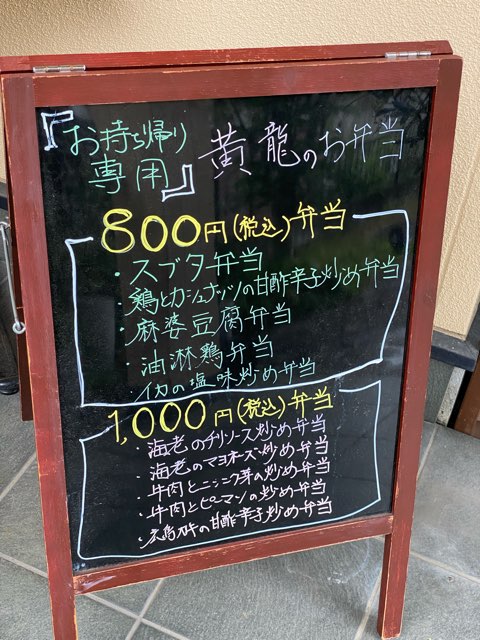 『お持ち帰り
専用』
黄龍のお弁当
800円(税込)弁当
・スブタ弁当
・鶏とカシュナッツの甘酢辛子炒め弁当
・麻婆豆腐弁当
・油淋鶏弁当
・イカの塩味炒め弁当
1,000円(税込)弁当
・海老のチリソース炒め弁当
・海老のマヨネーズ炒め弁当
・牛肉とニンニク芽の炒め弁当
・牛肉とピーマンの炒め弁当
の甘酢辛子炒め弁当